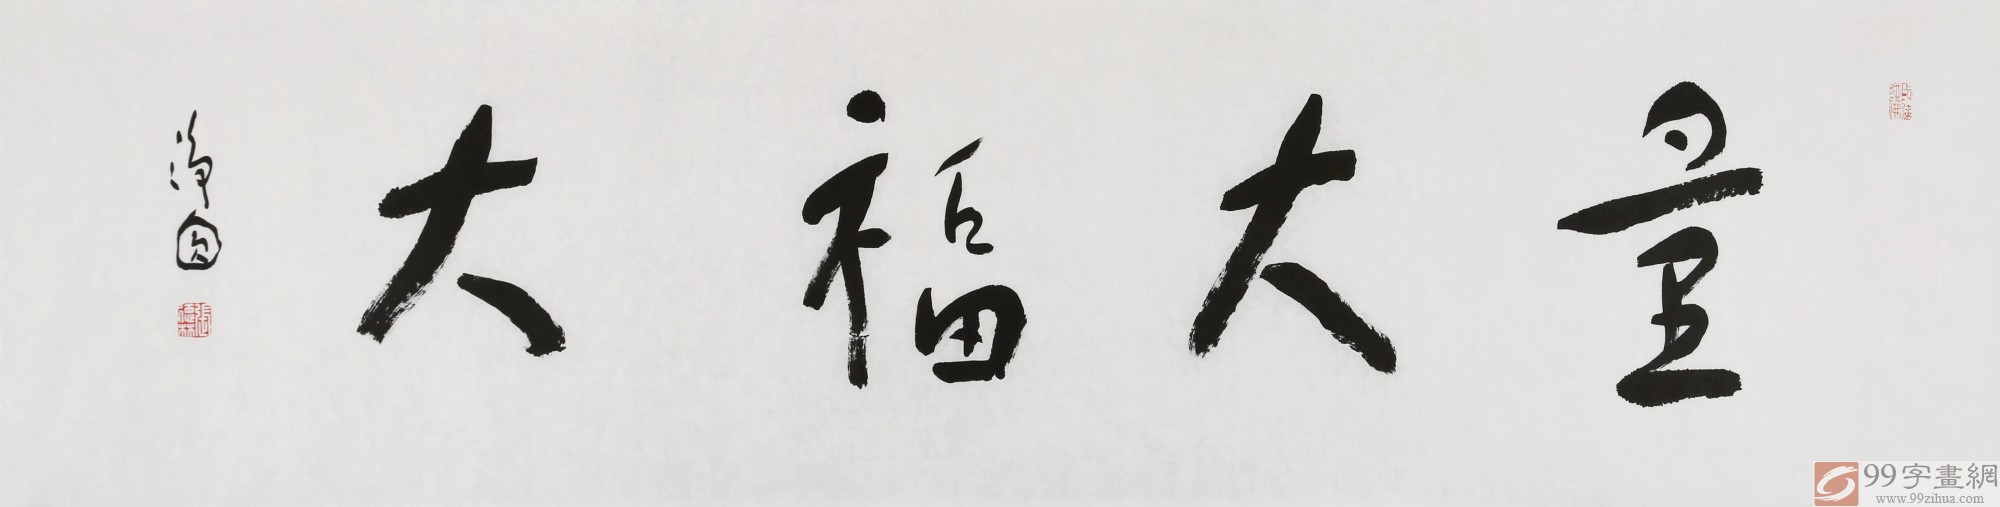 量大福大
净圆
99字畫網
www.99zihua.com